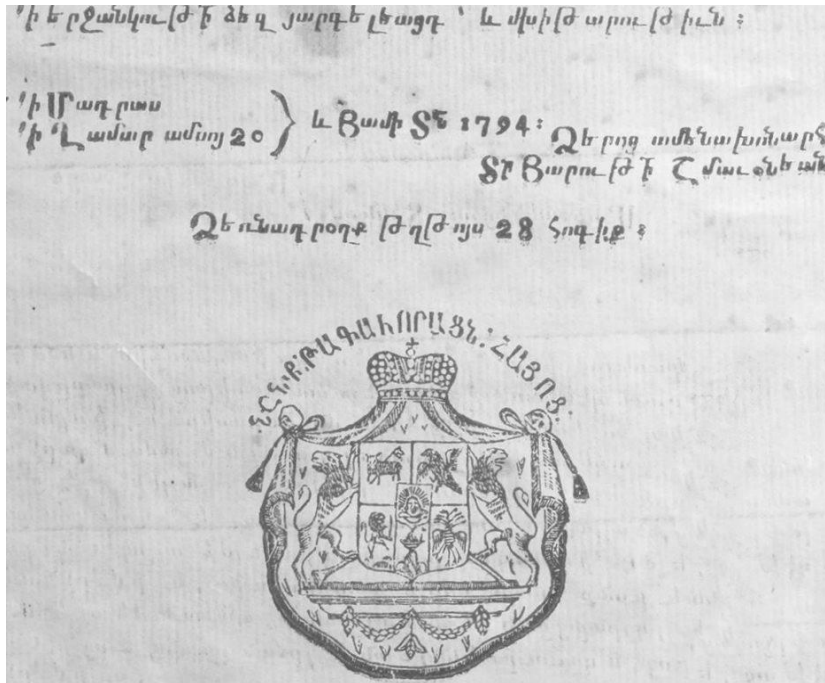 ՚ի երջանկութի ձեզ յարգելեացդ ՝ և մխիթարութիւն ։
՚ի Մադրաս
՚ի Ղամար ամսոյ 20
և Յամի Տն 1794 ։
Ձերոց ամենախոնարհ
Տր Յարութի Շմաւօնեան
Ձեռնադրօղք թղթոյս 28 հոգիք ։
ՆՇՆ.Ք. ԹԱԳԱՒՈՐԱՑՆ. ՀԱՅՈՑ.